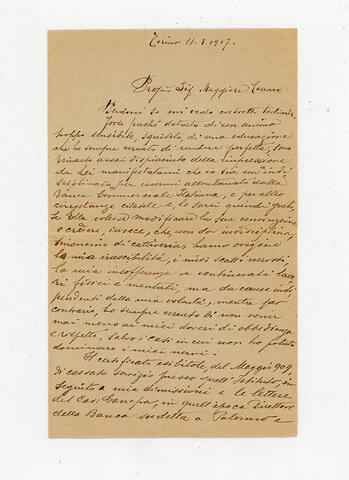 Torino 11.8.1917.
Preg.mo Sig. Maggiore
Perdoni se mi vedo costretto
forse perché dotato di un animo
troppo sensibile, squisito, di una educazione
che ho sempre cercato di rendere perfetta, sono
rimasto assai dispiaciuto della impressione
da Lei manifestatami che io sia un "indi
sciplinato", per essermi allontanato dalla
Banca Commerciale Italiana, e per altre
circostanze citatele e, le sarei quindi grato
se Ella volesse modificare la Sua convinzione
e credere, invece, che non da indisciplina,
sinonimo di cattiveria, hanno origine
la mia irascibilità, i miei scatti nervosi,
la mia insofferenza a continuati lavo
ri fisici e mentali, ma da cause indi
pendenti dalla mia volontà, mentre per
contrario, ho sempre cercato di non venir
mai meno ai miei doveri di obbedienza
e rispetto, salvo i casi in cui non ho potuto
dominare i miei nervi.
Il certificato esibitole, del Maggio 909,
di cessato servizio presso quell'Istituto, in
seguito a mie dimissioni e le lettere
del Cav. Canepa, in quell'epoca Direttore
della Banca suddetta a Palermo e